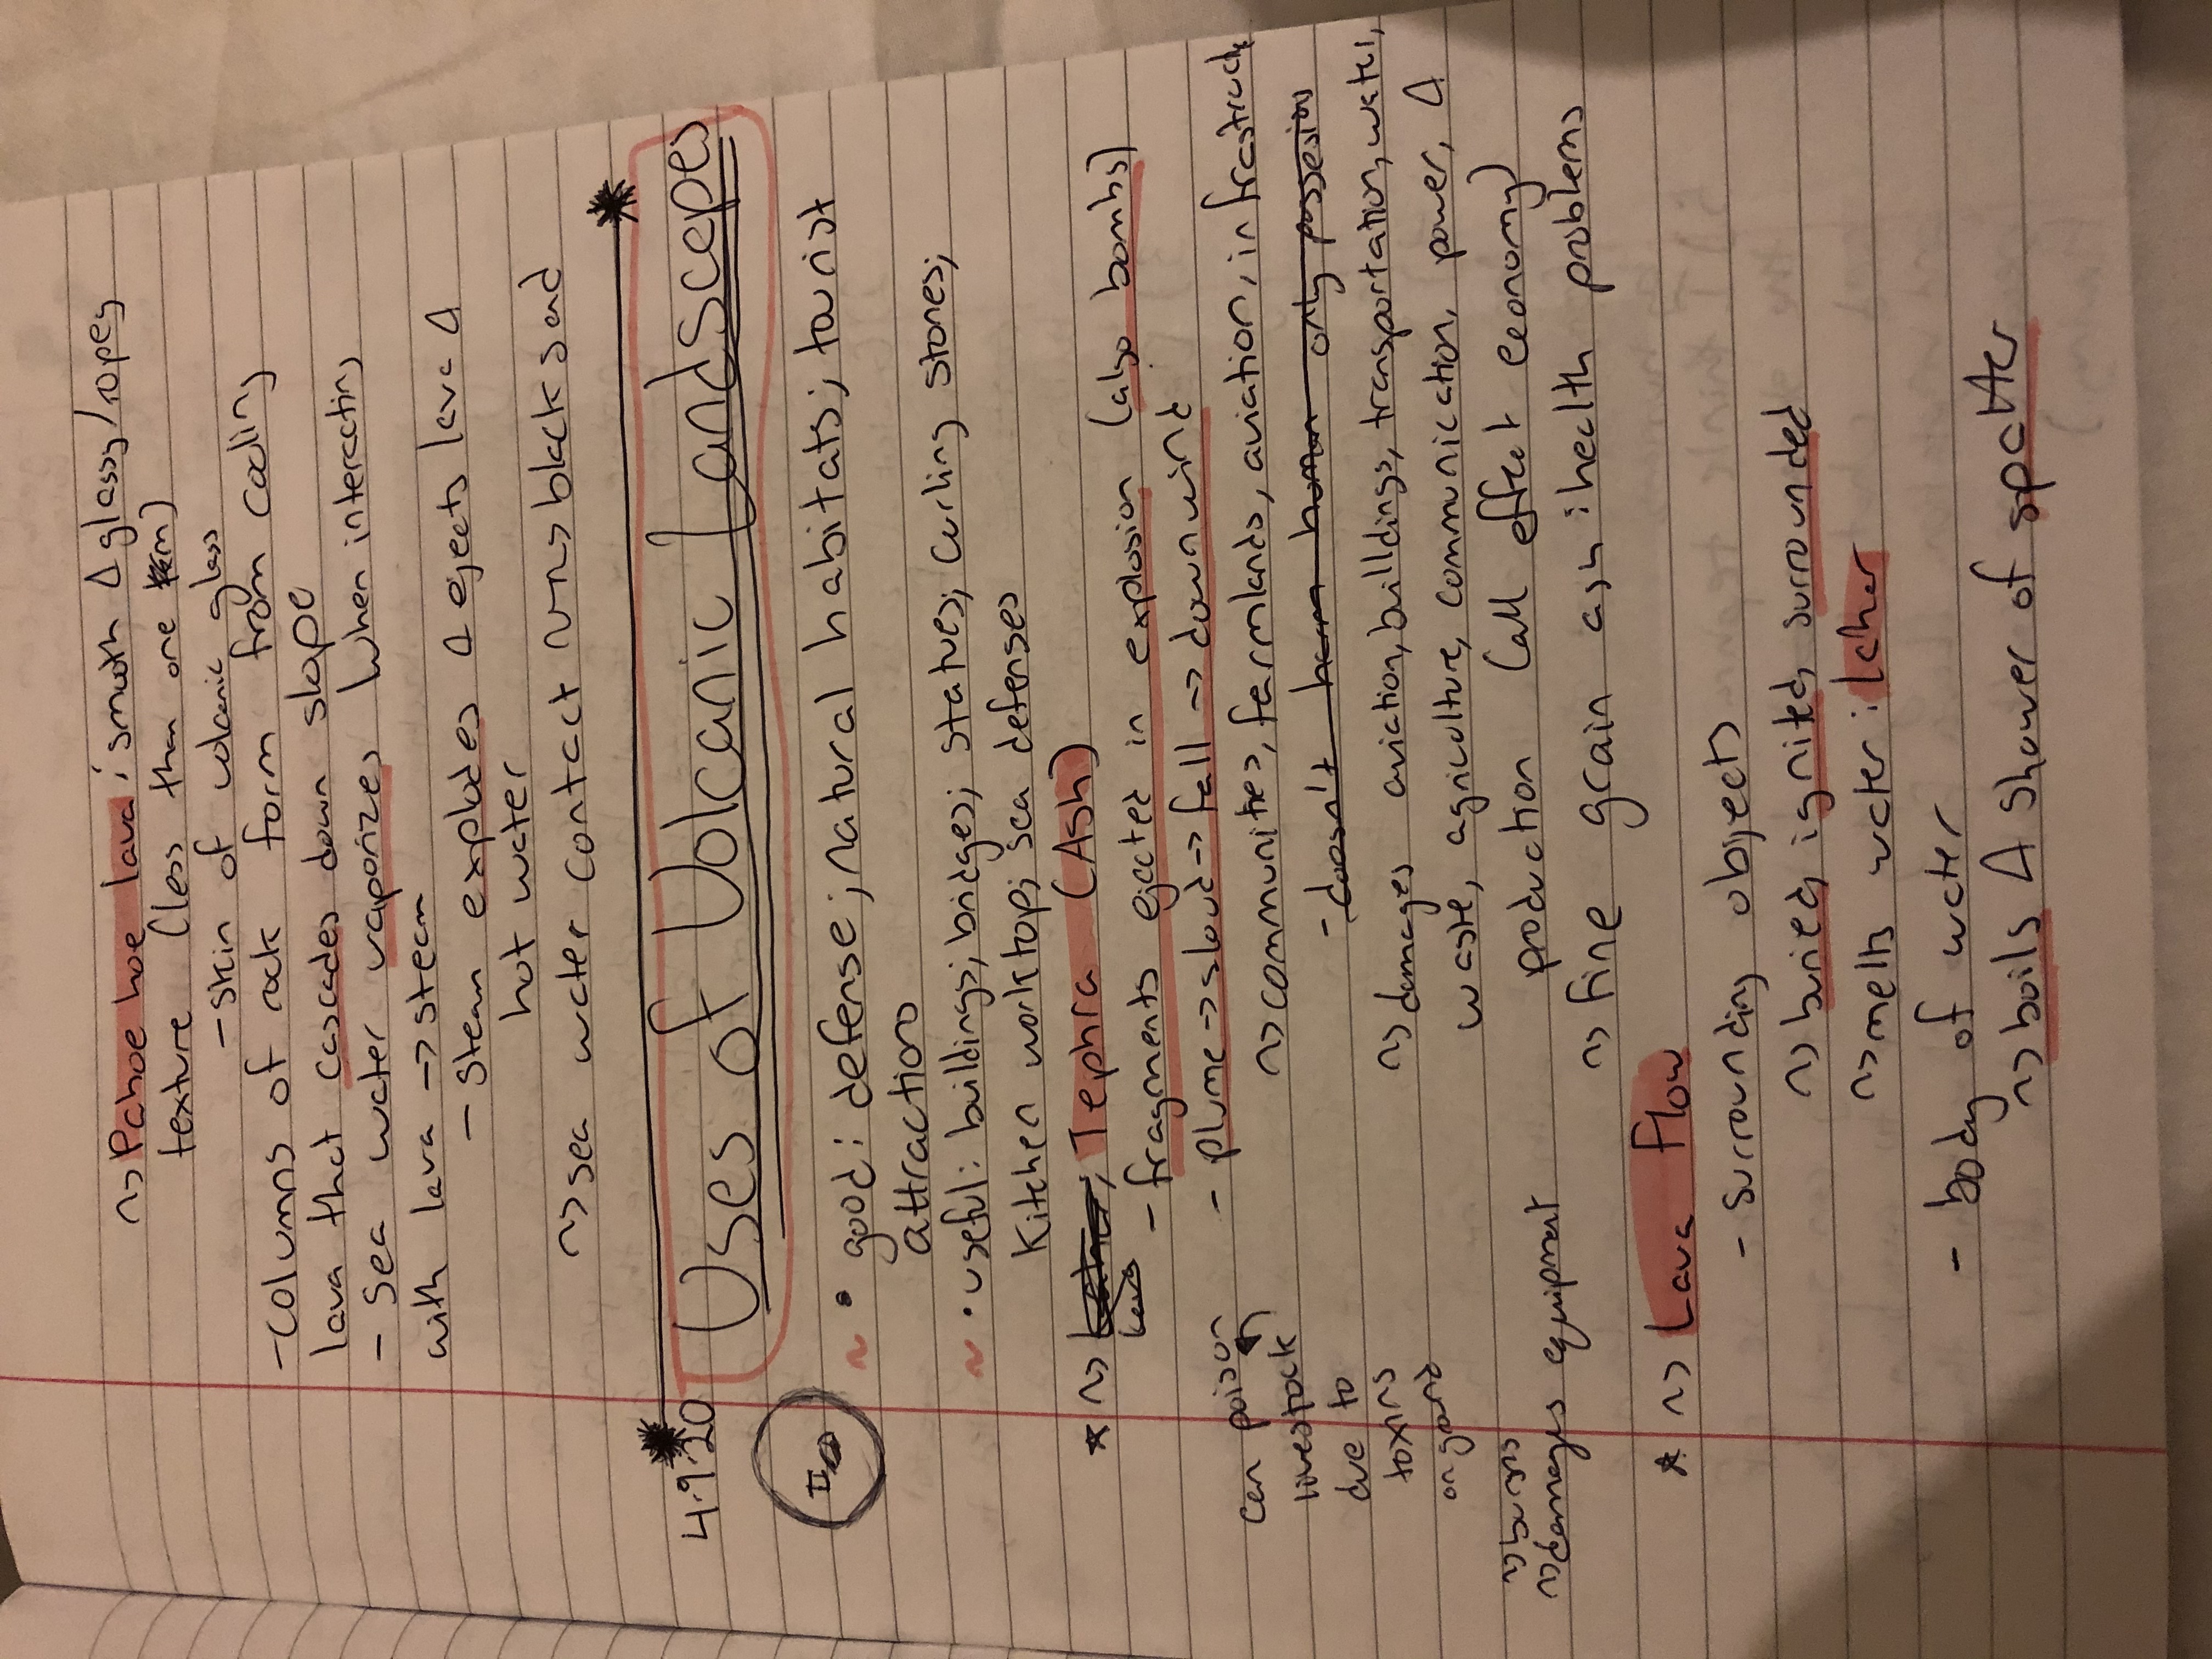 ~> Pahoe hoe lava: smooth & glassy/ropey
texture (less than one m)
- skin of volcanic glass
- columns of rock form from cooling
lava that cascades down slope
- Sea water vaporizes when interacting
with lava -> steam
- Steam explodes & ejects lava &
hot water
~> sea water contact ~~> black sand
4.9.20 Uses of Volcanic Landscapes
II
~ • good: defense; natural habitats; tourist
attractions
~ • useful: buildings; bridges; statues; curling stones;
Kitchen worktop; sea defenses
* ~> Tephra (Ash)
- fragments ejected in explosion (also bombs)
- plume -> sloud -> fall -> downwind
~> communities, farmlands, aviation, infrastruct
- doesn't harm human only possesions
can poison
livestock
due to
toxins
on ground
~> damages aviation, builldings, transportation, water,
waste, agriculture, communication, power, &
production (all effect economy)
~> burns
~> damages equipment
~> fine grain ash: health problems
* ~> Lava flow
- surrounding objects
~> buried, ignited, surrounded
~> melts water: lahar
- body of water
~> boils & shower of spatter